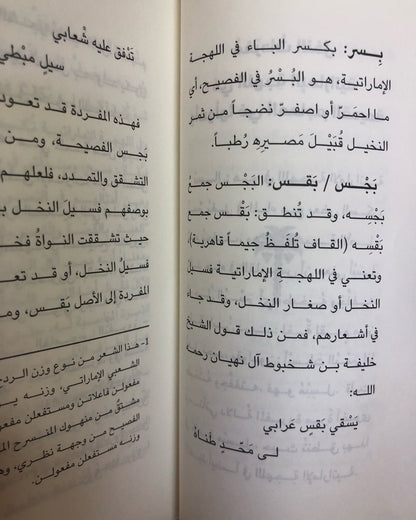 بِسر: بكسر الباء في اللهجة
الإماراتية، هو البُسْرُ في الفصيح، أي
ما احمَرّ أو اصفرّ نضجاً من ثمر
النخيل قُبَيْلَ مَصيرِه رُطباً.
بَجْس / بَقس: البَجْس جمعُ
بَجْسِه، وقد تُنطق: بَقْس جمعُ
بَقْسِه (القاف تُلفَظُ جيماً قاهرية)،
وتعني في اللهجةِ الإماراتيةِ فسيلَ
النخل أو صغار النخل، وقد جاء
في أشعارهم، فمن ذلك قول الشيخ
خليفة بن شخبوط آل نهيان رحمه
الله:
يَسْقي بَقسٍ عَرابي
لى مَحّدٍ طَناهْ
تدْفق عليه شْعابي
سيلٍ مبْطي
فهذه المفردة قد تعود
بَجس الفصيحة، ومن
التشقق والتمدد، فلعلهم
بوصفهم فسيلَ النخل به
حيث تشققت النواةُ فخ
فسيلُ النخل، أو قد تع
المفردة إلى الأصل بَقس، وم
1- هذا الشعر من نوع وزن الردح
الشعبي الإماراتي، وزنه يـ
مفعولن فاعلاتن ومستفعلن مفعو
مشتقٌ من منهوك المنسرح الم
الفصيح من وجهة نظري، وه
وزنه مستفعلن مفعولن.